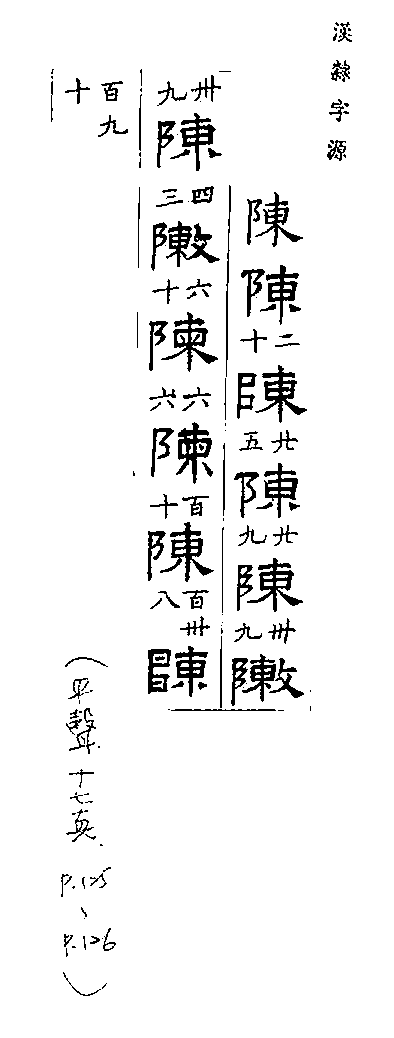 漢隸字源
陳陳二十陳廿五陳廿九陳卅九敶
卅九陳四三敶六十陳六六陳百十陳百卅八陳
百九十
（平聲十七真 P.125、P.126）